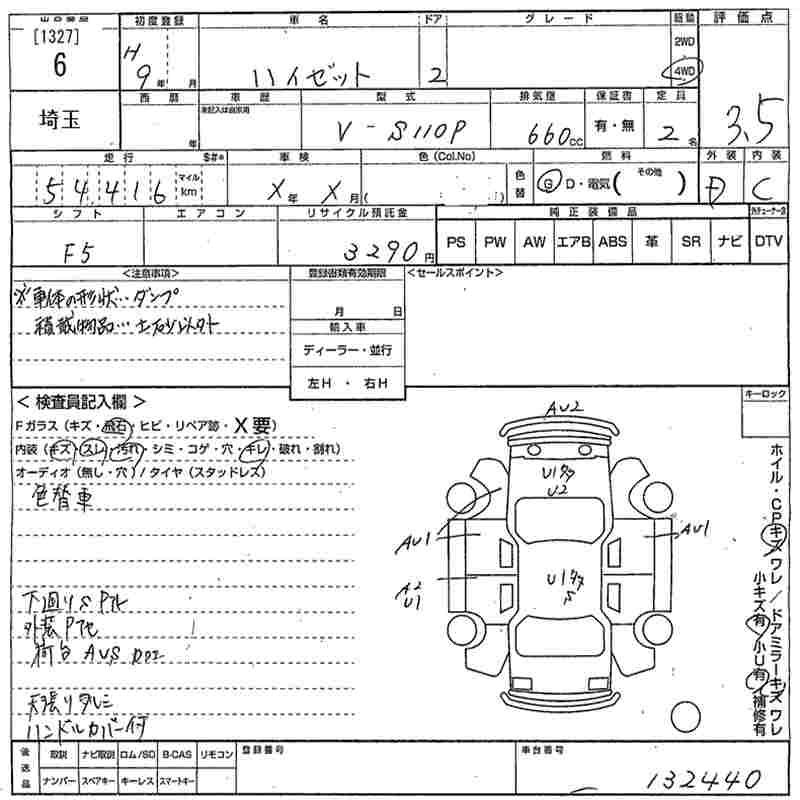 出品番号 初度登録 車名 ドア グレード 駆動 評価点
[1327] H 2WD
6 9年 月 ハイゼット 2 4WD
埼玉 西暦 車歴 型式 排気量 保証書 定員 3.5
未記入は自家用
年 V-S110P 660cc 有・無 2名
走行 $#* 車検 色(Col.No) 燃料 外装 内装
54,416 マイル km X年 X月 ( ) 色替 G D・電気( その他 ) D C
シフト エアコン リサイクル預託金 純正装備品
F5 3290円 PS PW AW エアB ABS 革 SR ナビ DTV
<注意事項> 登録書類有効期限 <セールスポイント>
※車体の形状…ダンプ 月 日
積載物品…土砂以外 輸入車
ディーラー・並行
左H ・ 右H
<検査員記入欄> キーロック
Fガラス(キズ・飛石・ヒビ・リペア跡・X要)
内装(キズ・スレ・汚れ・シミ・コゲ・穴・キレ・破れ・割れ)
オーディオ(無し・穴)/タイヤ(スタッドレス)
色替車
下廻りS
外装P
荷台AUS
天張りタルミ
ハンドルカバー付
AU2
U1タタ
U2
AU1
AU1
A2
U1
U1タタ
S
ホイル・CPキズワレ/ドアミラーキズワレ
小キズ有/小U有/補修有
後送品 取説 ナビ取説 ロム/SD B-CAS リモコン 登録番号 車台番号
ナンバー スペアキー キーレス スマートキー 132440